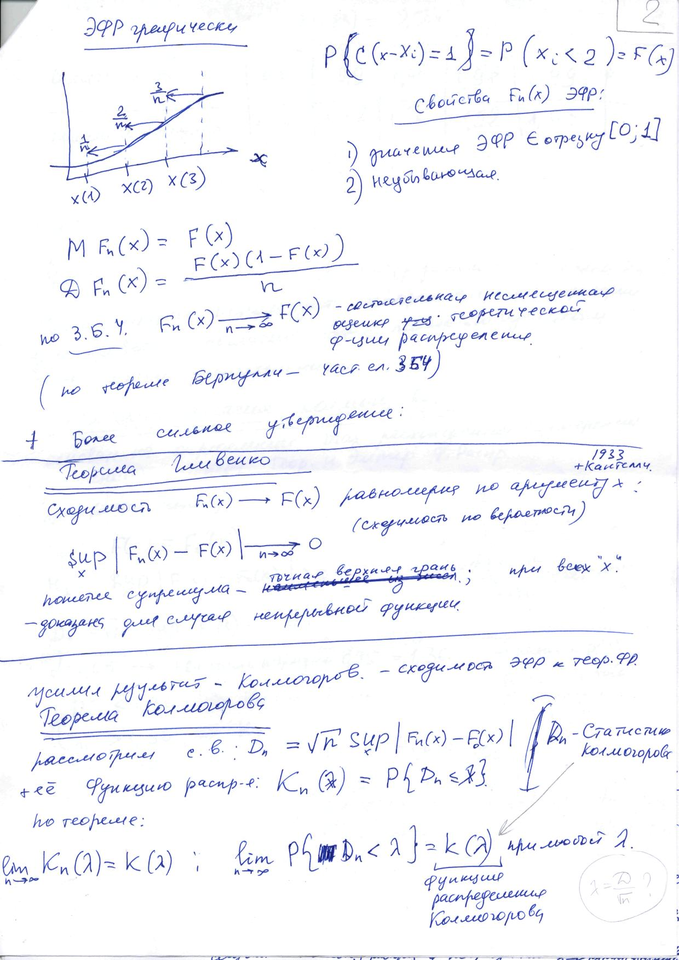 2
ЭФР графически
P{C(x-Xi)=1}=P(xi<2)=F(x)
Свойства Fn(x) ЭФР:
1) значения ЭФР ∈ отрезку [0;1]
2) неубывающая.
1/n 2/n 3/n
x(1) x(2) x(3) x
M Fn(x) = F(x)
Д Fn(x) = F(x)(1-F(x))/n
по З.Б.Ч. Fn(x) ⟶ n→∞ F(x) - состоятельная несмещенная
оценка теоретической
ф-ции распределения.
(по теореме Бернулли - част. сл. ЗБЧ)
Более сильное утверждение:
Теорема Гливенко
1933
+Кантелли.
Сходимость Fn(x) ⟶ F(x) равномерна по аргументу x:
(сходимость по вероятности)
Sup x |Fn(x) - F(x)| ⟶ n→∞ 0
понятие супремума - точная верхняя грань; при всех "x".
- доказана для случая непрерывной функции.
усилил результат - Колмогоров. - сходимость ЭФР к теор. ФР.
Теорема Колмогорова
рассмотрим с.в.: Dn = √n Sup x |Fn(x) - F0(x)|
Dn - Статистика
Колмогорова
+её Функцию распр-я: Kn(x) = P{Dn ≤ x}.
по теореме:
lim n→∞ Kn(λ) = k(λ); lim n→∞ P{Dn < λ} = k(λ) при любой λ.
функция
распределения
Колмогорова
λ = D/√n ?